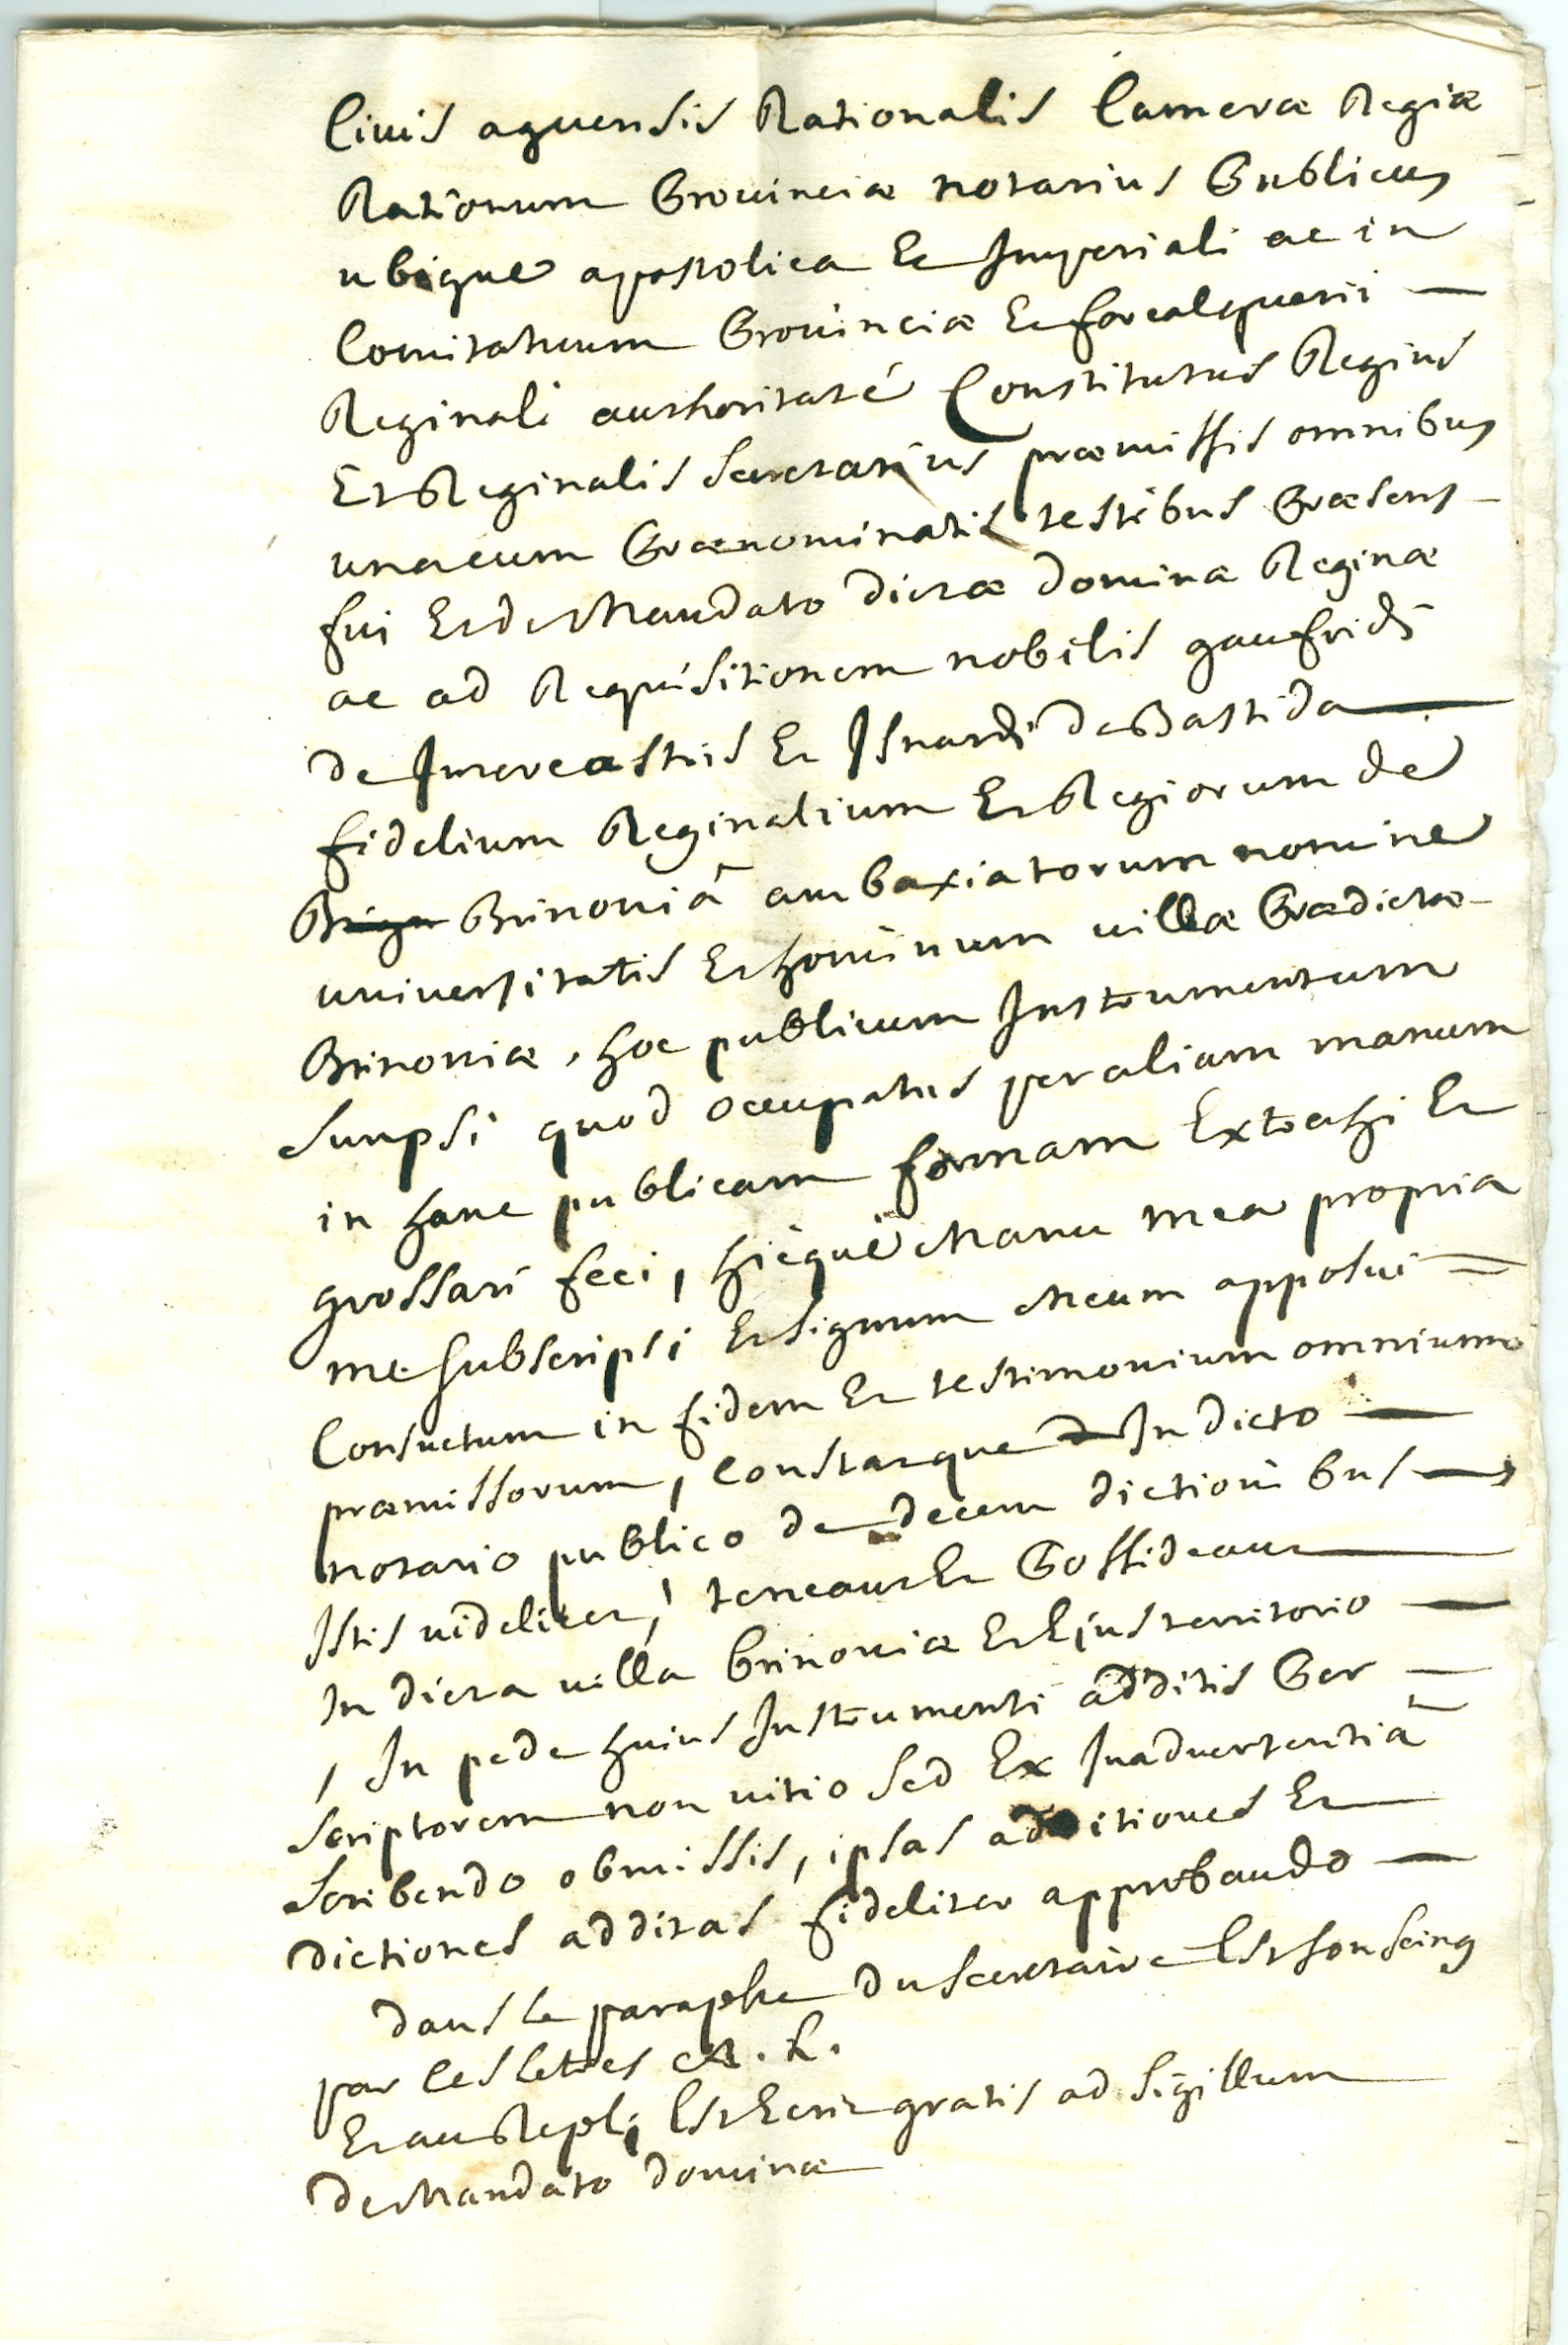 Civis aquensis Rationalis Cameræ Regiæ
Rationum Provinciæ notarius Publicus
ubique apostolica Et Imperiali ac in
Comitatuum Provinciæ Et forcalquerii —
Reginali authoritate Constitutus Regius
Et Reginalis Secretarius præmissis omnibus
unacum Prænominatis testibus Præsens —
fui Et de Mandato dictæ dominæ Reginæ
ac ad Requisitionem nobilis gaufridi
de Intercastris Et Isnardi de Bastida —
fidelium Reginalium Et Regiorum de
Brinoniâ ambaxiatorum nomine
universitatis Et hominum villæ Prædictæ —
Brinoniæ, hoc publicum Instrumentum
Sumpsi quod occupatus per aliam manum
in hanc publicam formam Extrahi Et
grossari feci, hicque Manu mea propria
me Subscripsi Et Signum Meum apposui =
Consuetum in fidem Et testimonium omnium
præmissorum, Constatque In dicto —
notario publico de decem dictionibus —
Istis videlicet, teneant Et Possideant —
In dicta villa brinoniæ Et Ejus territorio —
, In pede huius Instrumenti additis Per —
Scriptorem non vitio Sed Ex Inadvertentiâ
Scribendo obmissis, ipsas additiones Et
dictiones additas fideliter approbando —
dans le paraphe du Secretaire Est son Seing
par les lettres
Et au Repli Est Ecrit gratis ad Sigillum
de Mandato dominæ